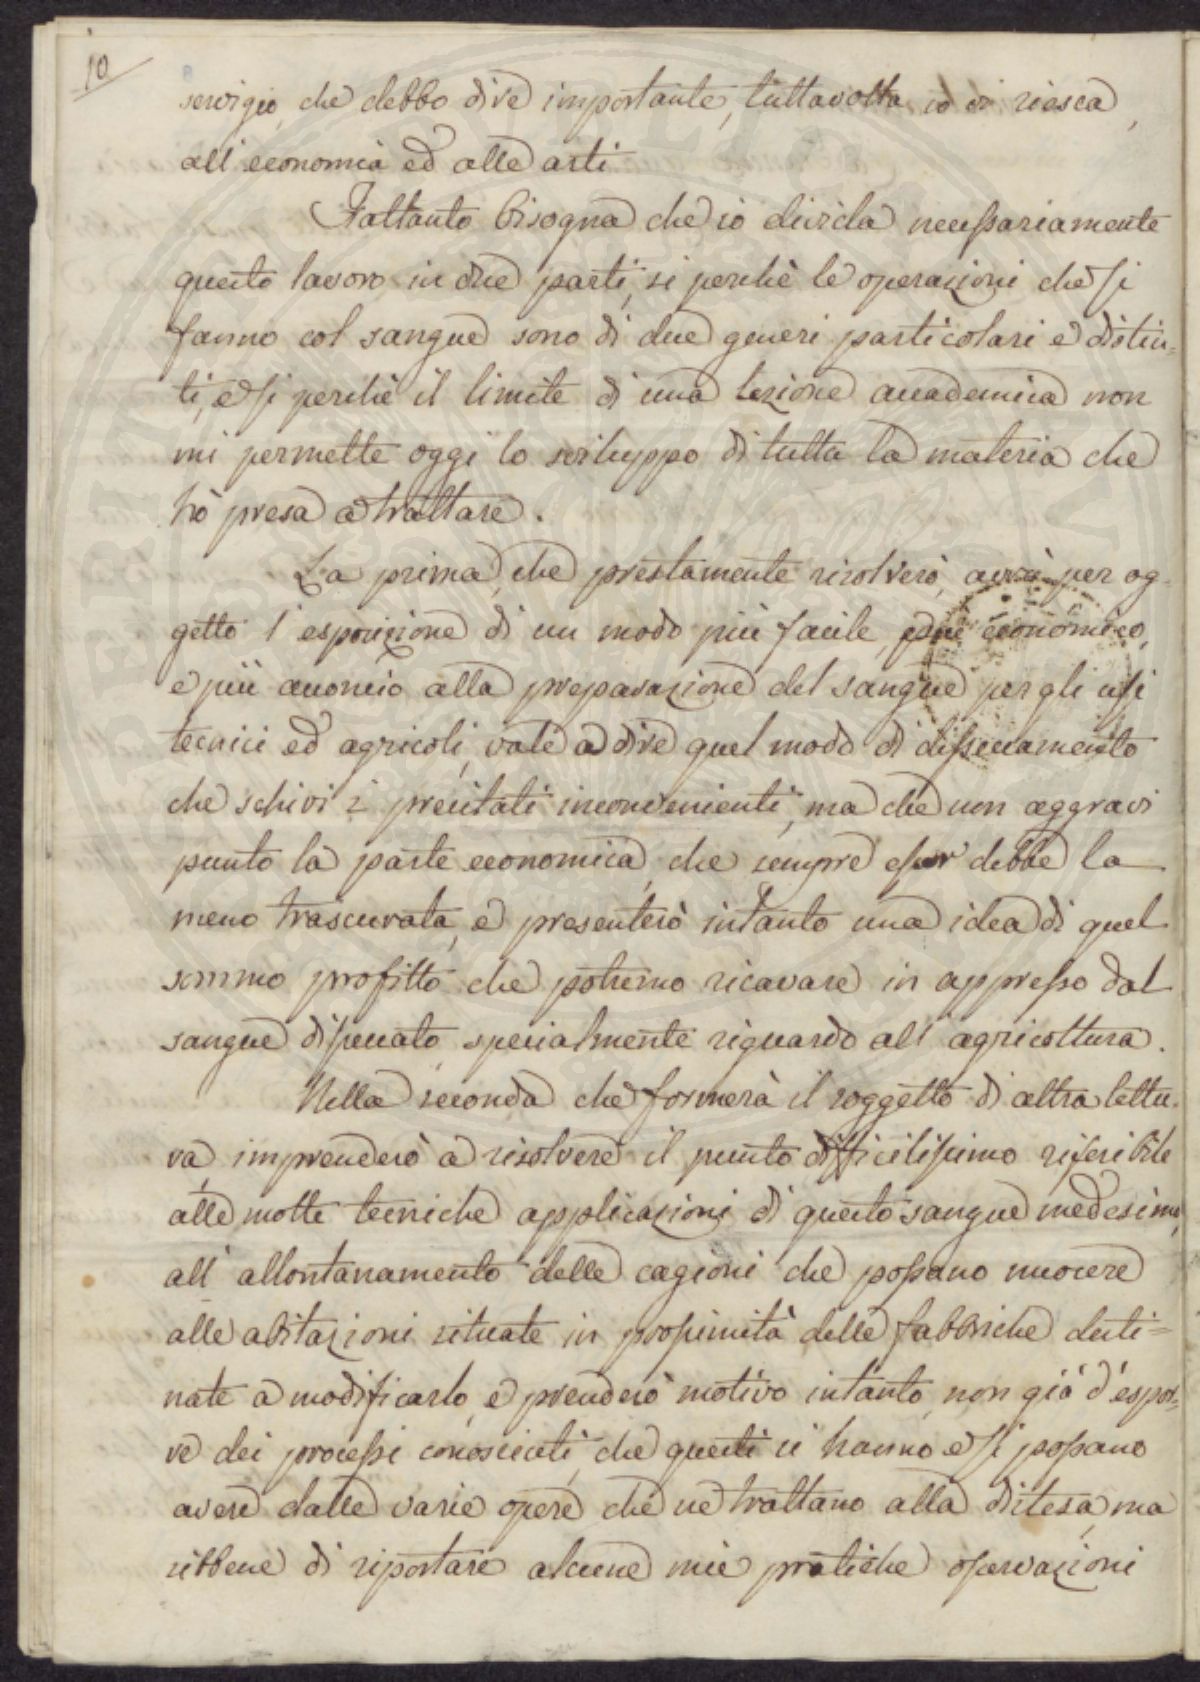 10
servigio, che debbo dire importante, tuttavolta io vi riesca,
all'economia ed alle arti
Fattanto bisogna che io divida necessariamente
questo lavoro in due parti, si perchè le operazioni che si
fanno col sangue sono di due generi particolari e distin=
ti, e si perchè il limite di una lezione accademica non
mi permette oggi lo sviluppo di tutta la materia che
hò presa a trattare.
La prima, che prestamente risolverò, avrà per og=
getto l'esposizione di un modo più facile, più economico,
e più acconcio alla preparazione del sangue per gli usi
tecnici ed agricoli, vale a dire quel modo di disseccamento
che schivi i precitati inconvenienti, ma che non aggravi
punto la parte economica, che sempre esser debbe la
meno trascurata, e presenterò intanto una idea di quel
sommo profitto che potremo ricavare in appresso dal
sangue disseccato, specialmente riguardo all'agricoltura.
Nella seconda che formerà il soggetto di altra lettu=
ra, imprenderò a risolvere il punto difficilissimo riferibile
alle molte tecniche applicazioni di questo sangue medesimo,
all'allontanamento delle cagioni che possano nuocere
alle abitazioni situate in prossimità delle fabbriche desti=
nate a modificarlo, e prenderò motivo intanto, non già d'espor=
re dei processi conosciuti, che questi si hanno e si possano
avere dalle varie opere che ne trattano alla distesa, ma
sibbene di riportare alcune mie pratiche osservazioni